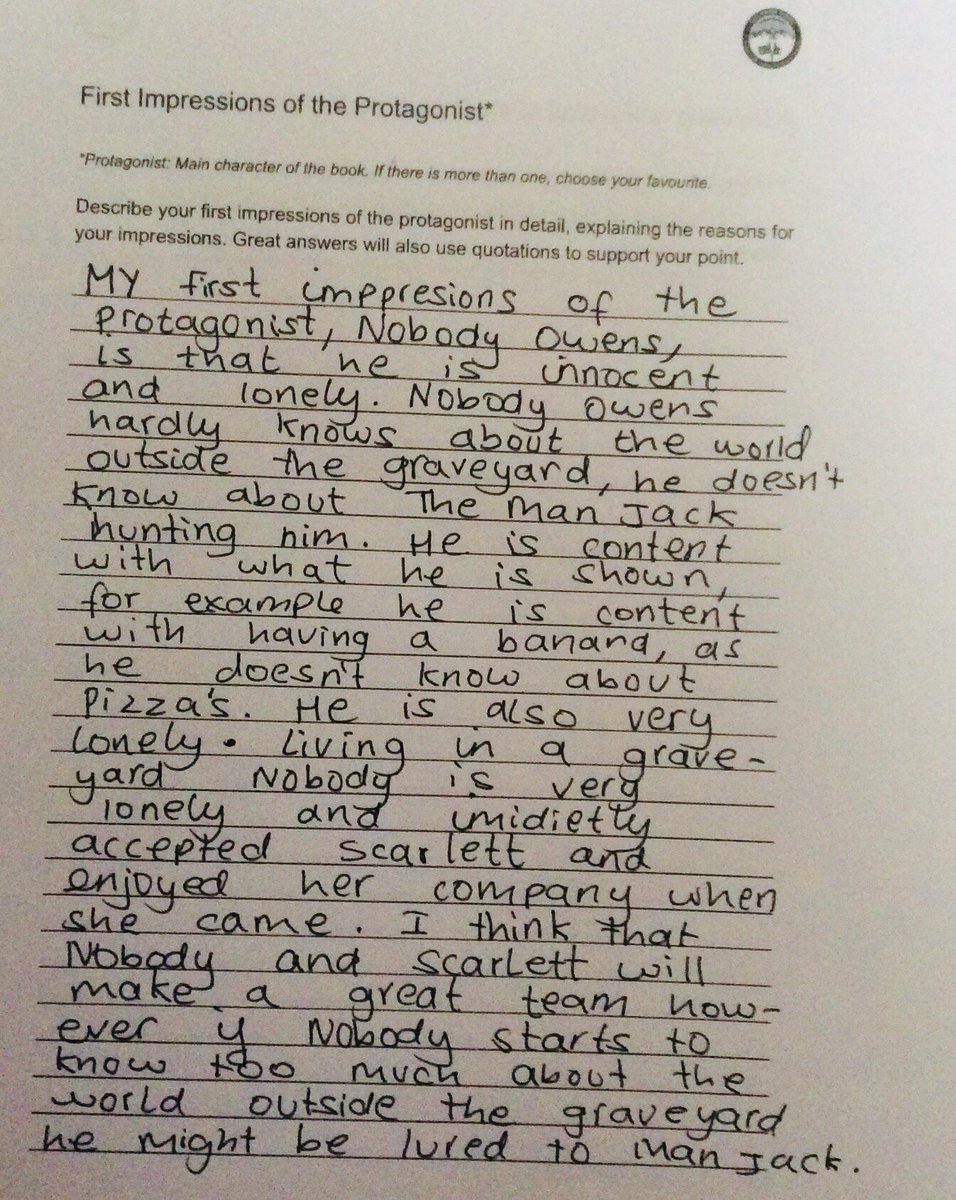 First Impressions of the Protagonist*
*Protagonist: Main character of the book. If there is more than one, choose your favourite.
Describe your first impressions of the protagonist in detail, explaining the reasons for
your impressions. Great answers will also use quotations to support your point.
MY first imppresions of the
protagonist, Nobody Owens,
is that he is innocent
and lonely. Nobody Owens
hardly knows about the world
outside the graveyard, he doesn't
know about The Man Jack
hunting him. He is content
with what he is shown,
for example he is content
with having a banana, as
he doesn't know about
Pizza's. He is also very
lonely. Living in a grave-
yard Nobody is very
lonely and imidietly
accepted scarlett and
enjoyed her company when
she came. I think that
Nobody and scarlett will
make a great team how-
ever if Nobody starts to
know too much about the
world outside the graveyard
he might be lured to Man Jack.